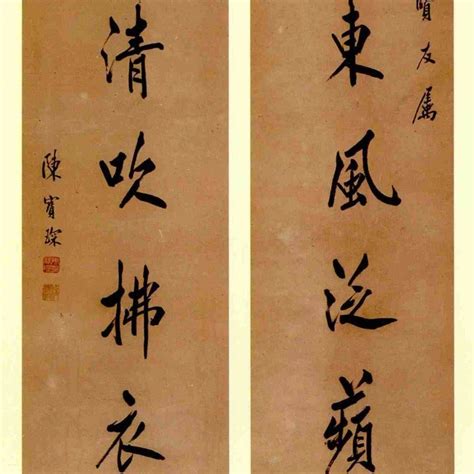 賢友屬
東風泛蘋
清吹拂衣
陳寶琛